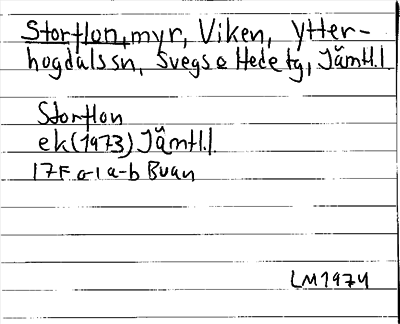 Storflon, myr, Viken, Ytter-
hogdals sn, Svegs o Hede tg, Jämtl.l
Storflon
ek (1973) Jämtl.l.
17F a-b Buan
LM 1974